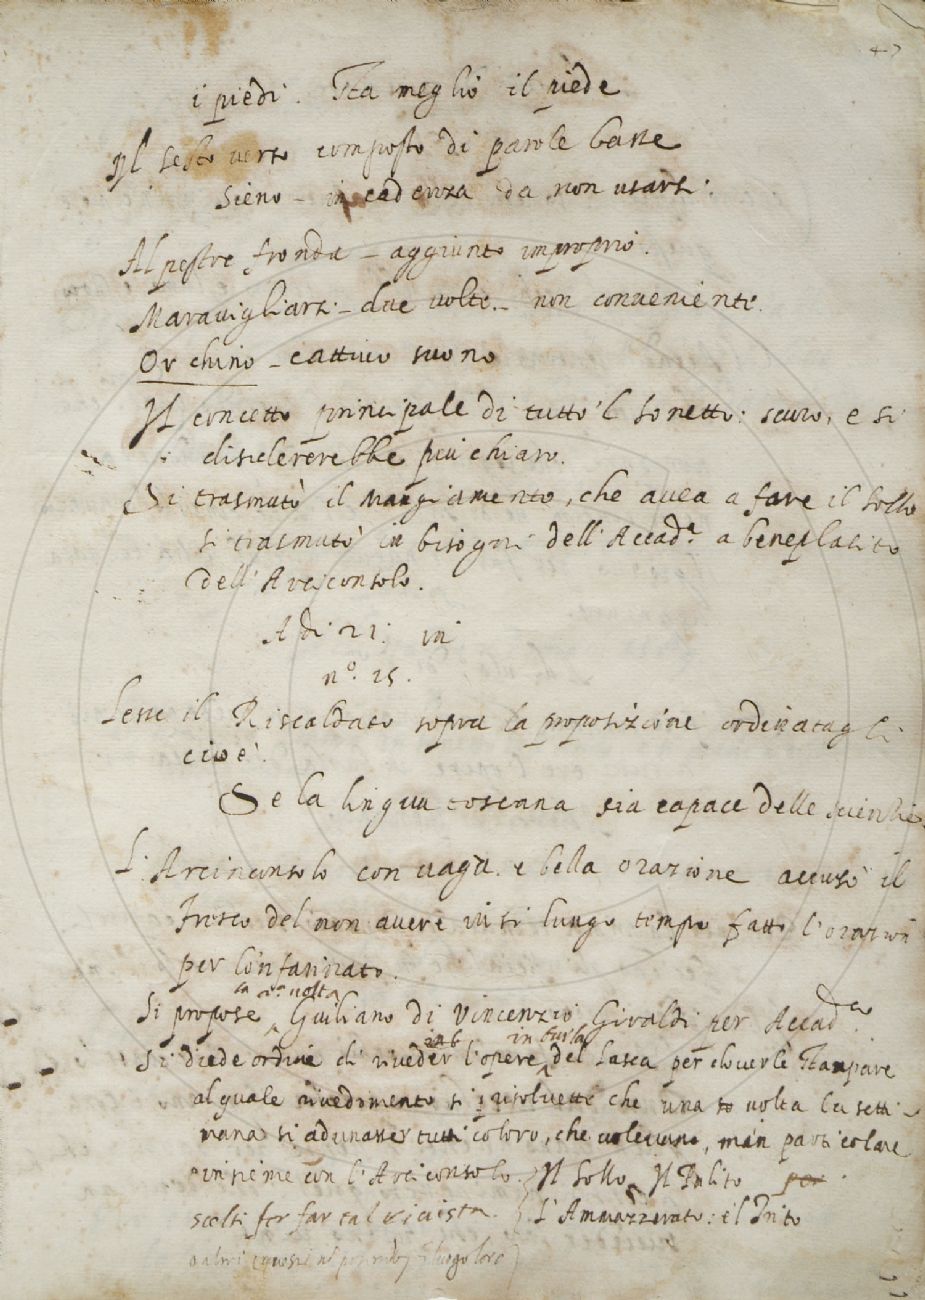 47
i piedi. Sta meglio il piede
Il sesto verso composto di parole basse
Sieno - in cadenza da non usarsi.
Alpestre fronda - aggiunto improprio.
Maravigliarsi - due volte - non conveniente.
Or chino - cattivo suono
Il concetto principale di tutto 'l sonetto: scuro, e si
disidererebbe piu chiaro.
Si trasmutò il mangiamento, che avea a fare il Sollo
si trasmutò in bisogni dell'Accad.a a beneplacito
dell'Arciconsolo.
A di 21: in
n.o 25.
Lesse il Riscaldato sopra la proposizione ordinatagli
cioè.
Se la lingua toscana sia capace delle scienzie
L'Arciconsolo con vaga e bella orazione accusò il
fresco del non avere in sì lungo tempo fatto l'orazion
per lo'nfarinato.
la 2.a volta
Si propose Giuliano di Vincenzio Giraldi per Accad.co
in burla
Si diede ordine di riveder l'opere del Lasca per doverle stampare
al quale rivedimento si risolvette che una volta la setti
mana si adunasser tutti coloro, che volevano, ma in particolare
insieme con l'Arciconsolo. Il Sollo Il Pulito
scelti per far tal rivista. L'Ammazzerato: il Trito